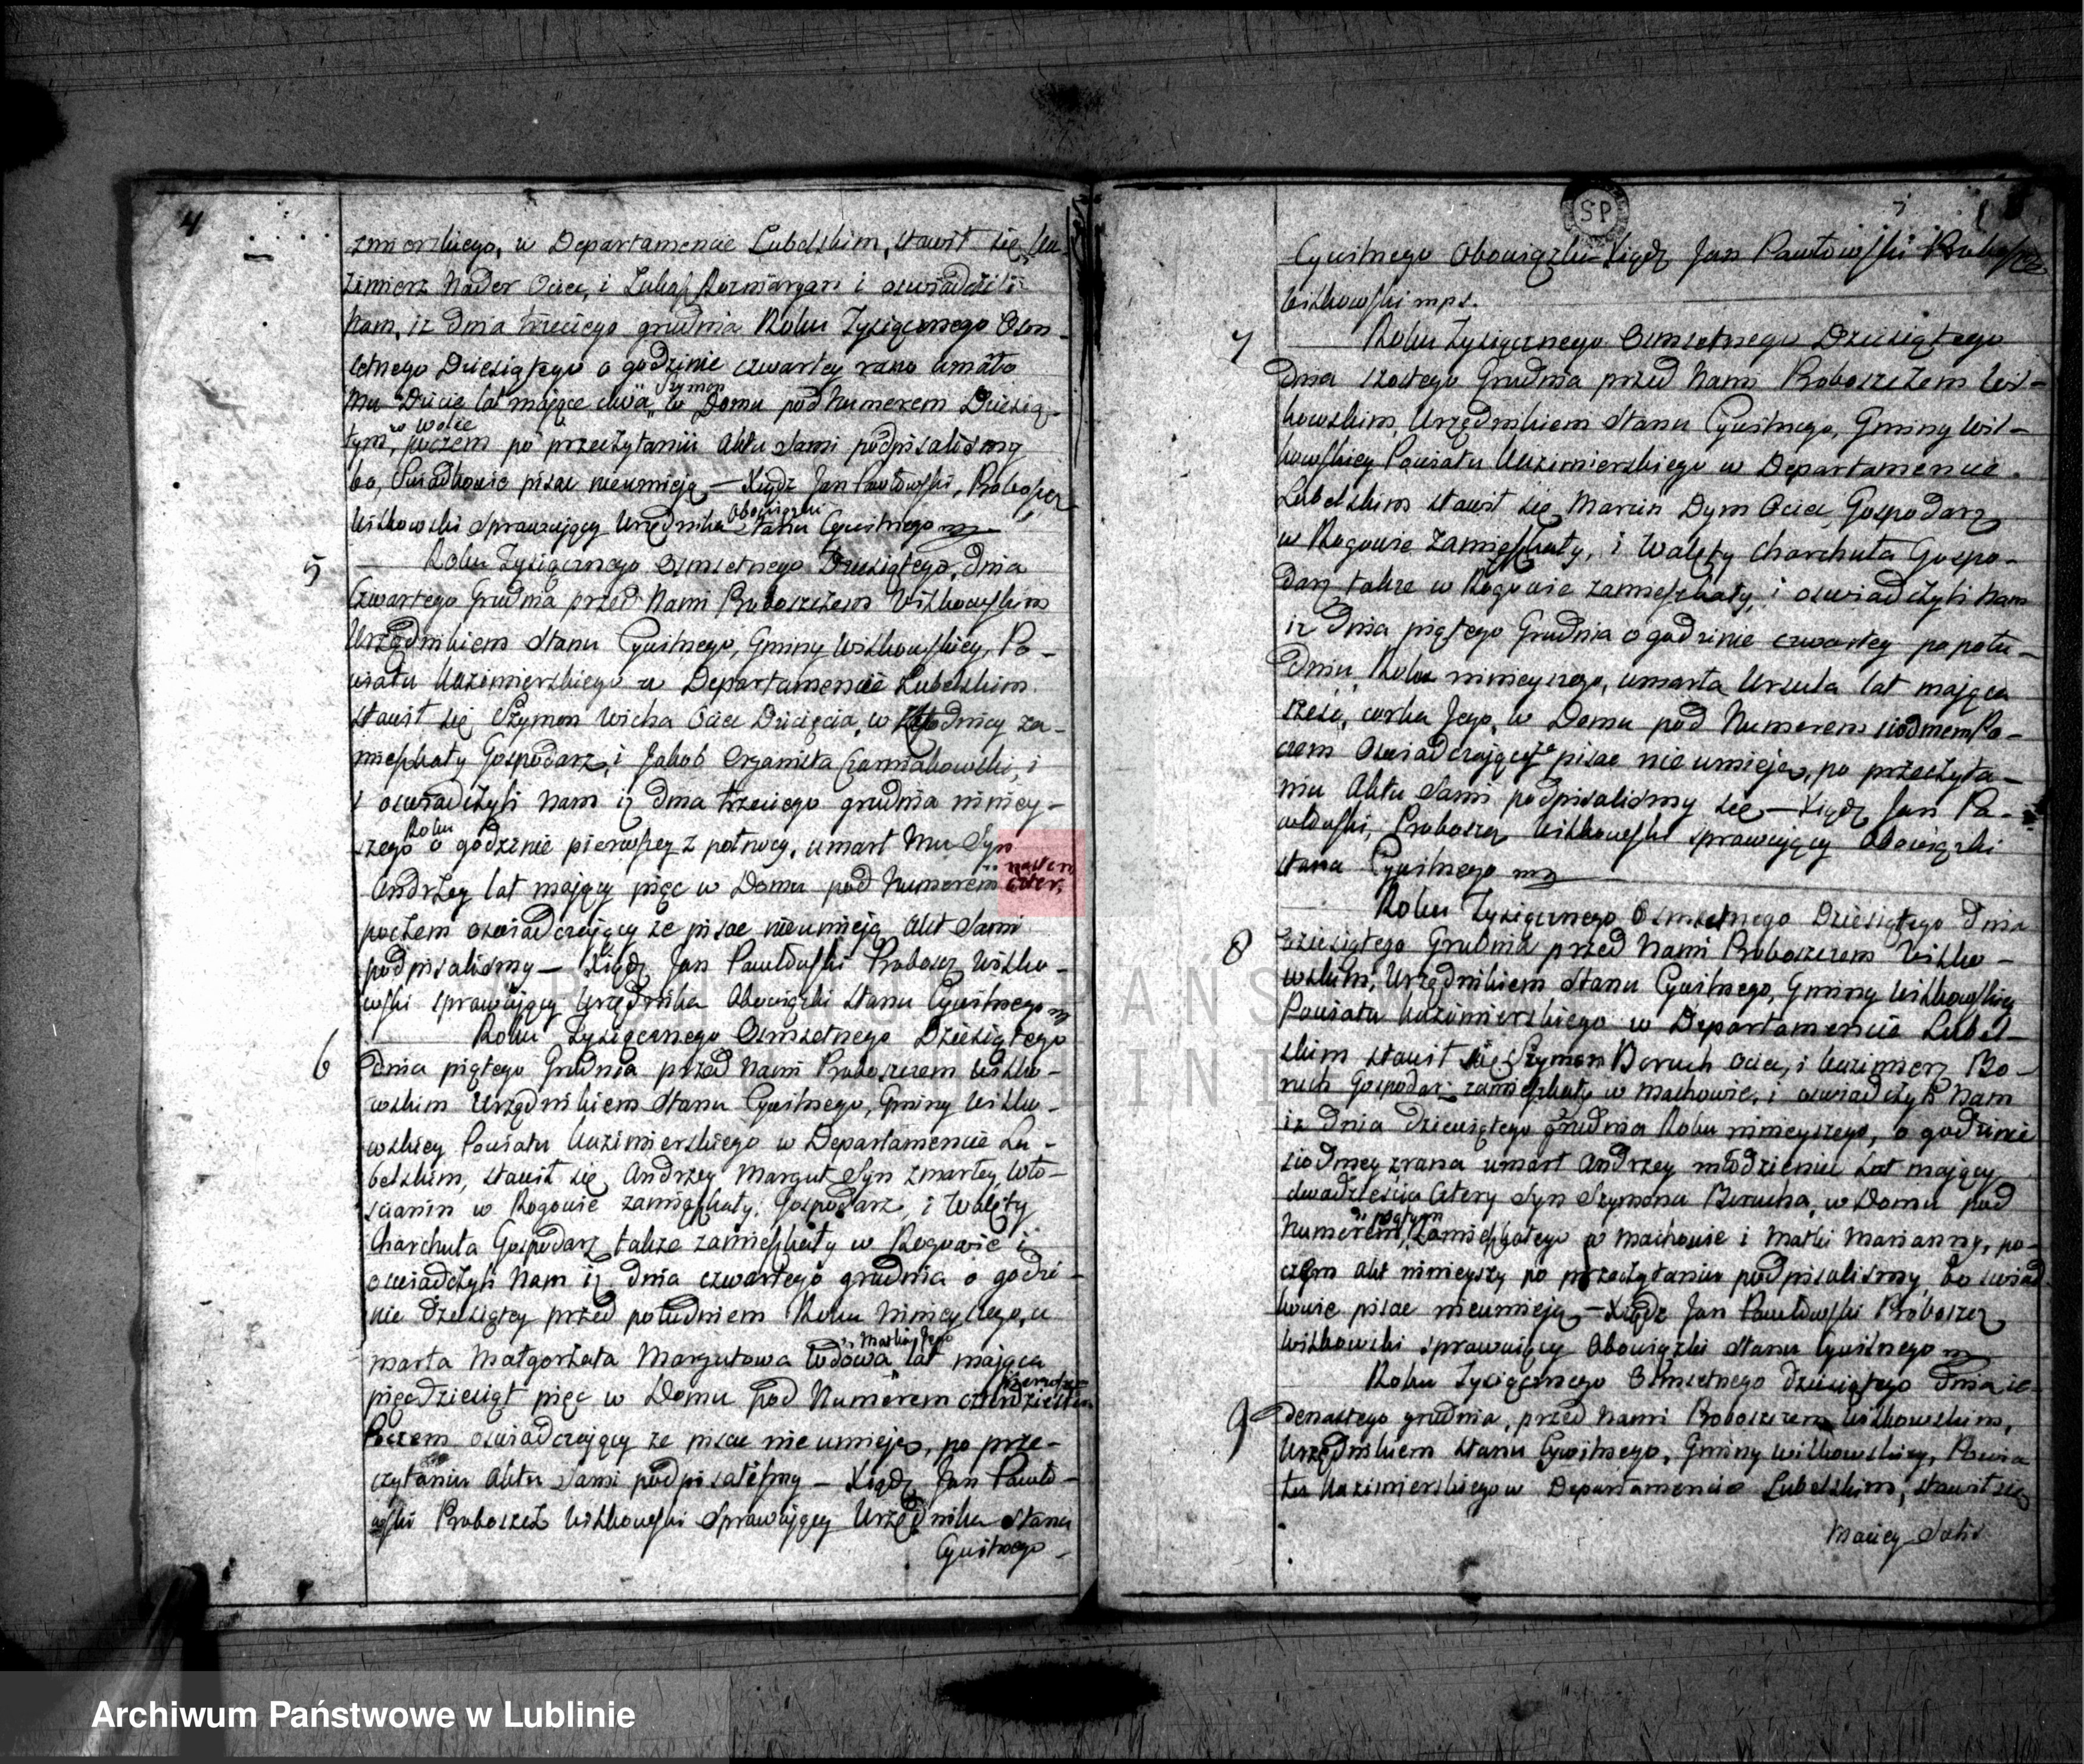 4
zmierskiego, w Departamencie Lubelskim, stawił się Ka-
zimierz Nader Ociec, i Łukasz i oswiadczyli
Nam, iż dnia trzeciego grudnia Roku Tysiącznego Osm-
setnego Dziesiątego o godzinie czwartey rano umarło
Mu Dziecie lat maiące dwa Szymon w Domu pod Numerem Dziesią-
tym w Wolce, poczem po przeczytaniu Aktu Sami podpisalismy
bo, Swiadkowie pisac nieumieią — Xiądz Jan Pawłowski, Proboszcz
Wilkowski sprawuiący Urzędnika Obowiązki Stanu Cywilnego
5
Roku Tysiącznego Osmsetnego Dziesiątego, dnia
Czwartego Grudnia przed Nami Proboszczem Wilkowskim
Urzędnikiem Stanu Cywilnego, Gminy Wilkowskiey, Po-
wiatu Kazimierskiego w Departamencie Lubelskim
stawił się Szymon Wicha Ociec Dziecięcia, w za-
mieszkały Gospodarz, i Jakob Organista i
i oswiadczyli Nam iż dnia trzeciego grudnia niniey-
szego Roku o godzinie pierwszey z połnocy, umarł Mu Syn
Andrzey lat maiący pięc w Domu pod Numerem
poczem oswiadczaiący ze pisac nieumieią Akt Sami
podpisalismy — Xiądz Jan Pawłowski Proboszcz Wilko-
wski sprawuiący Urzędnika Obowiązki Stanu Cywilnego
Roku Tysiącznego Osmsetnego Dziesiątego
6
dnia piątego Grudnia przed Nami Proboszczem Wilko-
wskim Urzędnikiem Stanu Cywilnego, Gminy Wilko-
wskiey Powiatu Kazimierskiego w Departamencie Lu-
belskim, stawił się Andrzey Margut Syn zmarłey, Wło-
scianin w Rogowie zamieszkały, Gospodarz, i Walęty
Charchuła Gospodarz takze zamieszkały w Rogowie i
oswiadczyli Nam iż dnia czwartego grudnia o godzi-
nie dziesiątey przed południem Roku Ninieyszego, u-
marła Małgorzata Margutowa Wdowa Matka Jego lat maiąca
pięcdziesiąt pięc w Domu pod Numerem
Poczem oswiadczaiący ze pisac nie umieią, po prze-
czytaniu Aktu Sami podpisalismy — Xiądz Jan Pawło-
wski Proboszcz Wilkowski Sprawuiący Urzędnika Stanu
Cywilnego
SP
Cywilnego Obowiązki Xiądz Jan Pawłowski Proboszcz
Wilkowski mps.
7
Roku Tysiącznego Osmsetnego Dziesiątego
dnia szostego Grudnia przed Nami Proboszczem Wil-
kowskim, Urzędnikiem Stanu Cywilnego, Gminy Wil-
kowskiey Powiatu Kazimierskiego w Departamencie
Lubelskim stawił się Marcin Dym Ociec, Gospodarz
w Rogowie zamieszkały, i Walęty Charchuła Gospo-
darz takze w Rogowie zamieszkały, i oswiadczyli Nam
iż dnia piątego Grudnia o godzinie czwartey po połu-
dniu Roku ninieyszego, umarła Urszula lat maiąca
szesc, corka Jego, w Domu pod Numerem siodmem Po-
czem Oswiadczaiący pisac nie umieią, po przeczyta-
niu Aktu Sami podpisalismy się — Xiądz Jan Pa-
włowski, Proboszcz Wilkowski sprawuiący Obowiązki
Stanu Cywilnego
8
Roku Tysiącznego Osmsetnego Dziesiątego dnia
dziesiątego Grudnia przed Nami Proboszczem Wilko-
wskim, Urzędnikiem Stanu Cywilnego, Gminy Wilkowskiey
Powiatu Kazimierskiego w Departamencie Lubel-
skim stawił się Szymon Boruch Ociec, i Kazimierz Bo-
ruch Gospodarz zamieszkały w Machowie, i oswiadczyli Nam
iż dnia dziewiątego grudnia Roku ninieyszego, o godzinie
siodmey zrana umarł Andrzey młodzieniec Lat maiący
dwadziescia cztery Syn Szymona Borucha, w Domu pod
Numerem piątym Zamieszkałego w Machowie i Matki Marianny, po-
czem Akt ninieyszy po przeczytaniu podpisalismy, bo swiad-
kowie pisac nieumieią — Xiądz Jan Pawłowski Proboszcz
Wilkowski sprawuiący Obowiązki Stanu Cywilnego
Roku Tysiącznego Osmsetnego dziesiątego Dnia ie-
9
denastego grudnia, przed Nami Proboszczem Wilkowskim,
Urzędnikiem Stanu Cywilnego, Gminy Wilkowskiey, Powia-
tu Kazimierskiego w Departamencie Lubelskim, stawił się
Maciey
Archiwum Państwowe w Lublinie